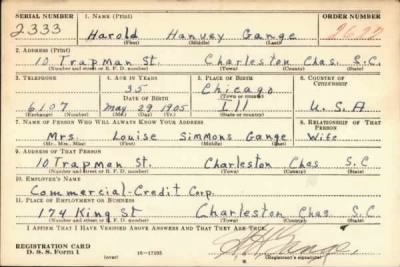 SERIAL NUMBER 1. NAME (Print) ORDER NUMBER
2333 Harold Hanvey Gange
(First) (Middle) (Last)
2. ADDRESS (Print)
10 Trapman St. Charleston Chas. S.C.
(Number and street or R. F. D. number) (Town) (County) (State)
3. TELEPHONE 4. AGE IN YEARS 5. PLACE OF BIRTH 6. COUNTRY OF CITIZENSHIP
35 Chicago
DATE OF BIRTH (Town or county)
6107 May 29 1905 Ill U.S.A
(Exchange) (Number) (Mo.) (Day) (Yr.) (State or country)
7. NAME OF PERSON WHO WILL ALWAYS KNOW YOUR ADDRESS 8. RELATIONSHIP OF THAT PERSON
Mrs. Louise Simmons Gange Wife
(Mr., Mrs., Miss) (First) (Middle) (Last)
9. ADDRESS OF THAT PERSON
10 Trapman St. Charleston Chas S.C
(Number and street or R. F. D. number) (Town) (County) (State)
10. EMPLOYER'S NAME
Commercial-Credit Corp.
11. PLACE OF EMPLOYMENT OR BUSINESS
174 King St Charleston Chas S.C
(Number and street or R. F. D. number) (Town) (County) (State)
I AFFIRM THAT I HAVE VERIFIED ABOVE ANSWERS AND THAT THEY ARE TRUE.
REGISTRATION CARD
D. S. S. Form 1 (over) (Registrant's signature)